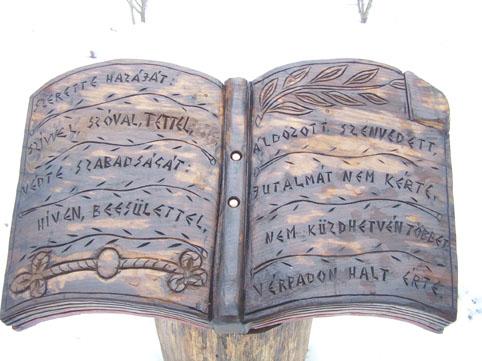 SZERETTE HAZÁJÁT:
SZIVVEL, SZÓVAL, TETTEL,
VÉDTE SZABADSÁGÁT:
HÍVEN, BECSÜLETTEL,
ÁLDOZOTT, SZENVEDETT,
JUTALMÁT NEM KÉRTE,
NEM KÜZDHETVÉN TÖBBET
VÉRPADON HALT ÉRTE.